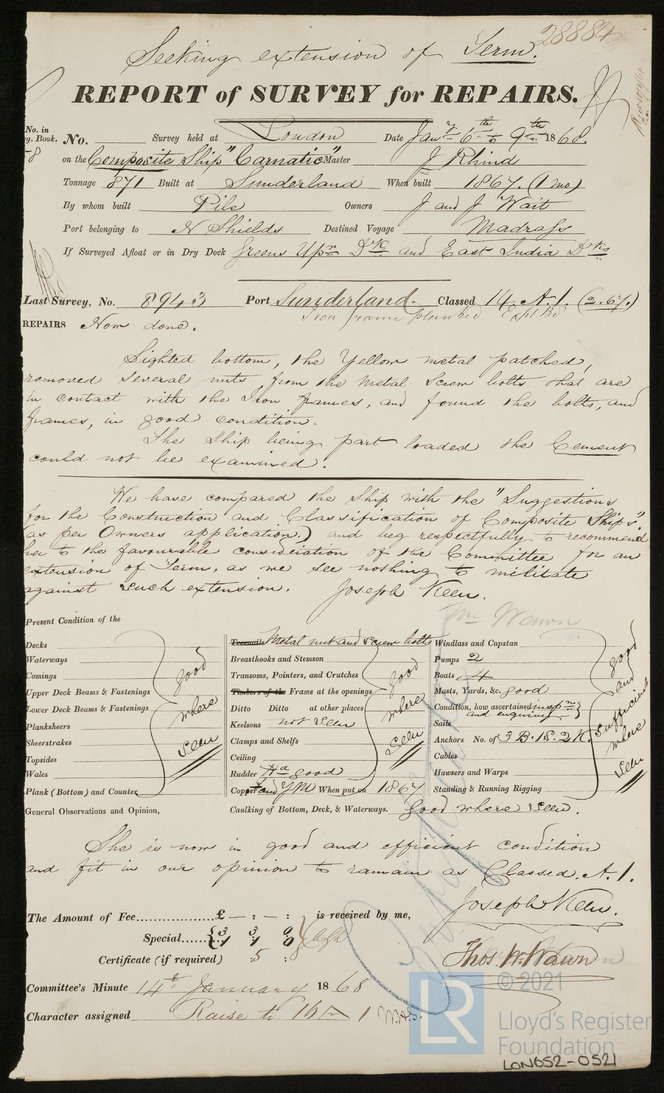 28884
Seeking extension of Term.
REPORT of SURVEY for REPAIRS.
No. in
g. Book. No. Survey held at London Date Jany 6th & 9th 1868
8 on the Composite Ship "Carnatic" Master J Rhind
Tonnage 871 Built at Sunderland When built 1867 (1 mo)
By whom built Pile Owners J and J Wait
Port belonging to N Shields Destined Voyage Madras
If Surveyed Afloat or in Dry Dock Greens Upr Dk and East India Dks
Last Survey, No. 8943 Port Sunderland. Classed 14 A.1 (2.67.)
Iron frame planked Expl Bd
REPAIRS Now done.
Sighted bottom, the Yellow metal patched,
removed several nuts from the metal Screw bolts that are
in contact with the Iron frames, and found the bolts, and
frames, in good condition.
The Ship being part loaded the Cement
could not be examined.
We have compared the Ship with the "Suggestions
for the Construction and Classification of Composite Ships".
(as per Owners application.) and beg respectfully to recommend
her to the favourable consideration of the Committee for an
extension of Term, as we see nothing to militate
against such extension. Joseph Keen.
Mr Wawn
Present Condition of the
Decks
Waterways
Comings
Upper Deck Beams & Fastenings
Lower Deck Beams & Fastenings
Planksheers
Sheerstrakes
Topsides
Wales
Plank (Bottom) and Counter
good
where
seen
Treenails Metal nut and screw bolts
Breasthooks and Stemson
Transoms, Pointers, and Crutches
Timbers of the Frame at the openings
Ditto Ditto at other places
Keelsons not seen
Clamps and Shelfs
Ceiling
Rudder good
Copper and YM When put on 1867
good
where
seen
Windlass and Capstan
Pumps 2
Boats 4
Masts, Yards, &c. good
Condition, how ascertained
and enquiring
Sails
Anchors No. of 3 B. 1S. 2K.
Cables
Hawsers and Warps
Standing & Running Rigging
good
and
sufficient
where
seen
General Observations and Opinion, Caulking of Bottom, Deck, & Waterways. Good where seen.
She is now in good and efficient condition
and fit in our opinion to remain as Classed A. 1.
Joseph Keen.
The Amount of Fee £ — : — : is received by me,
Special 3 3 0
1 1 0
Certificate (if required) : 5
Thos W. Wawn
Committee's Minute 14th January 1868
Character assigned Raise to 16 A 1
LR
© 2021
Lloyd's Register
Foundation
LON652-0521